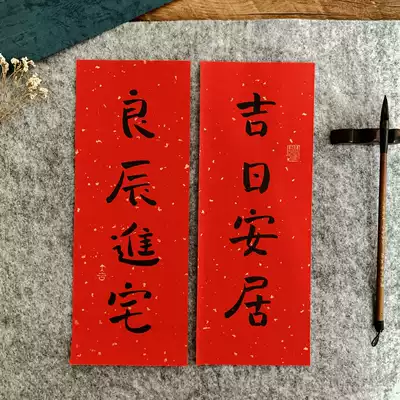 吉日安居
良辰進宅